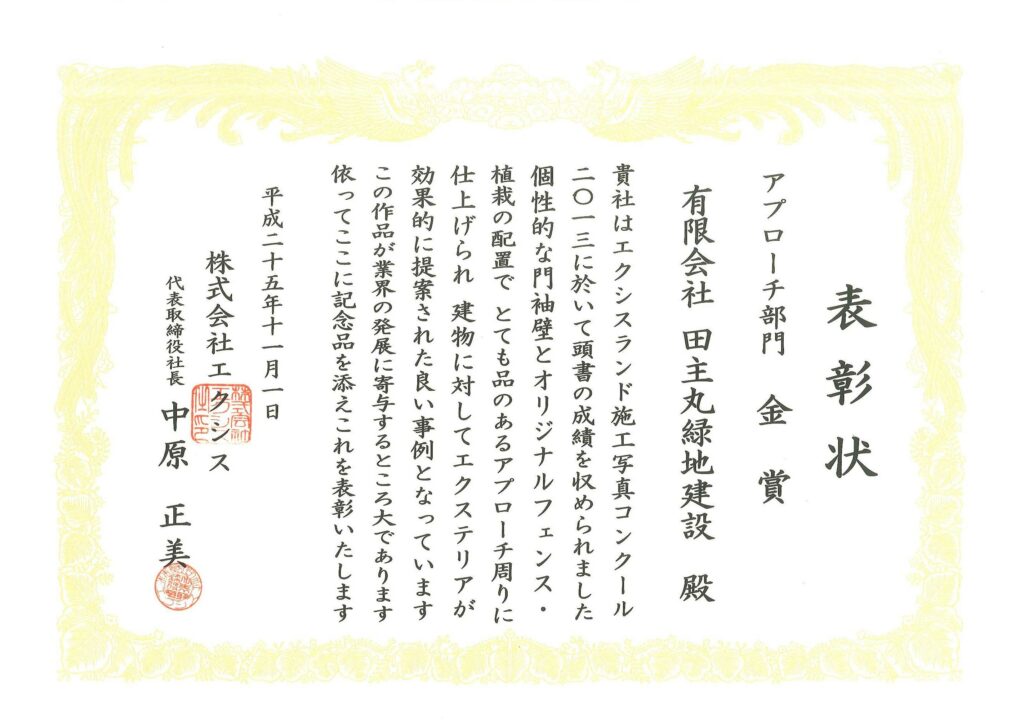 表彰状
アプローチ部門 金賞
有限会社 田主丸緑地建設 殿
貴社はエクシスランド施工写真コンクール
二〇一三に於いて頭書の成績を収められました
個性的な門袖壁とオリジナルフェンス・
植栽の配置で とても品のあるアプローチ周りに
仕上げられ 建物に対してエクステリアが
効果的に提案された良い事例となっています
この作品が業界の発展に寄与するところ大であります
依ってここに記念品を添えこれを表彰いたします
平成二十五年十一月一日
株式会社エクシス
代表取締役社長 中原 正美